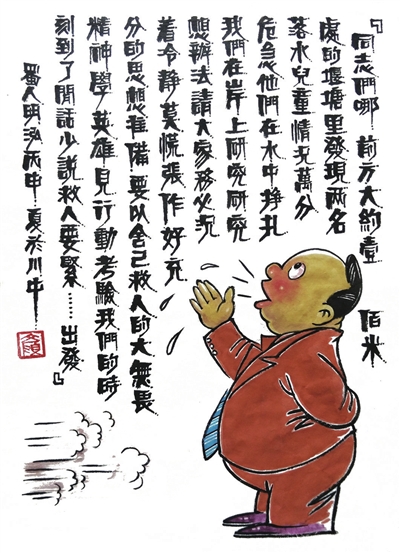 『同志們哪 前方大約壹佰米
處的堰塘里發現兩名
落水兒童情況萬分
危急他們在水中掙扎
我們在岸上研究研究
想辦法請大家務必沉
着冷靜莫慌張作好充
分的思想准備要以舍己救人的大無畏
精神學英雄見行動考驗我們的時
刻到了閒話少說救人要緊……出發』
蜀人明泓丙申夏於川中